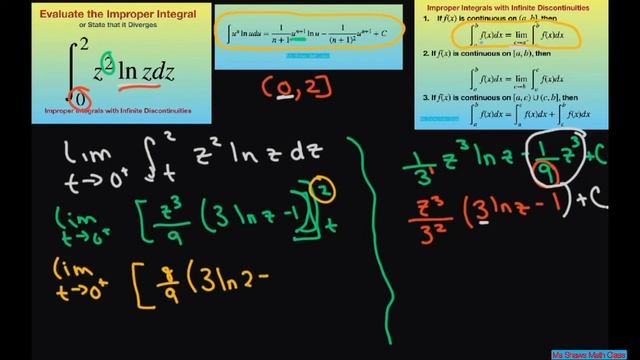 Evaluate the Improper Integral
or State that it Diverges
∫₀² z² ln z dz
Improper Integrals with Infinite Discontinuities
∫ uⁿ ln u du = 1/(n+1) uⁿ⁺¹ ln u − 1/(n+1)² uⁿ⁺¹ + C
(0, 2]
Improper Integrals with Infinite Discontinuities
1. If f(x) is continuous on (a, b], then
∫ₐᵇ f(x)dx = lim c→a⁺ ∫_c^b f(x)dx
2. If f(x) is continuous on [a, b), then
∫ₐᵇ f(x)dx = lim c→b⁻ ∫ₐᶜ f(x)dx
3. If f(x) is continuous on [a, c) ∪ (c, b], then
∫ₐᵇ f(x)dx = ∫ₐᶜ f(x)dx + ∫_c^b f(x)dx
lim t→0⁺ ∫ₜ² z² ln z dz
lim t→0⁺ [z³/9 (3 ln z − 1)]ₜ²
lim t→0⁺ [8/9 (3 ln 2 −
1/3 z³ ln z − 1/9 z³ + C
z³/3² (3 ln z − 1) + C
Ms Shaws Math Class